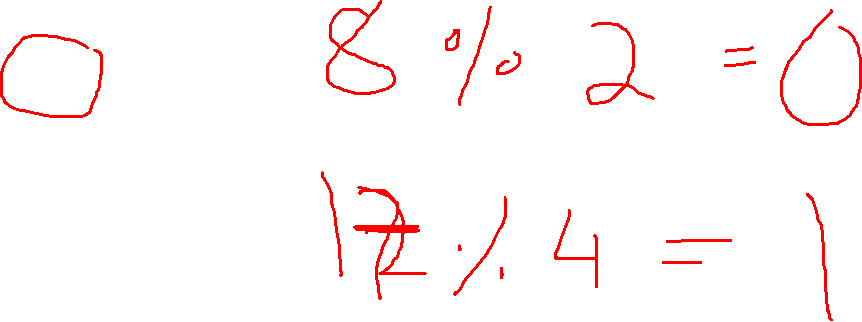 8 % 2 = 0
17 % 4 = 1